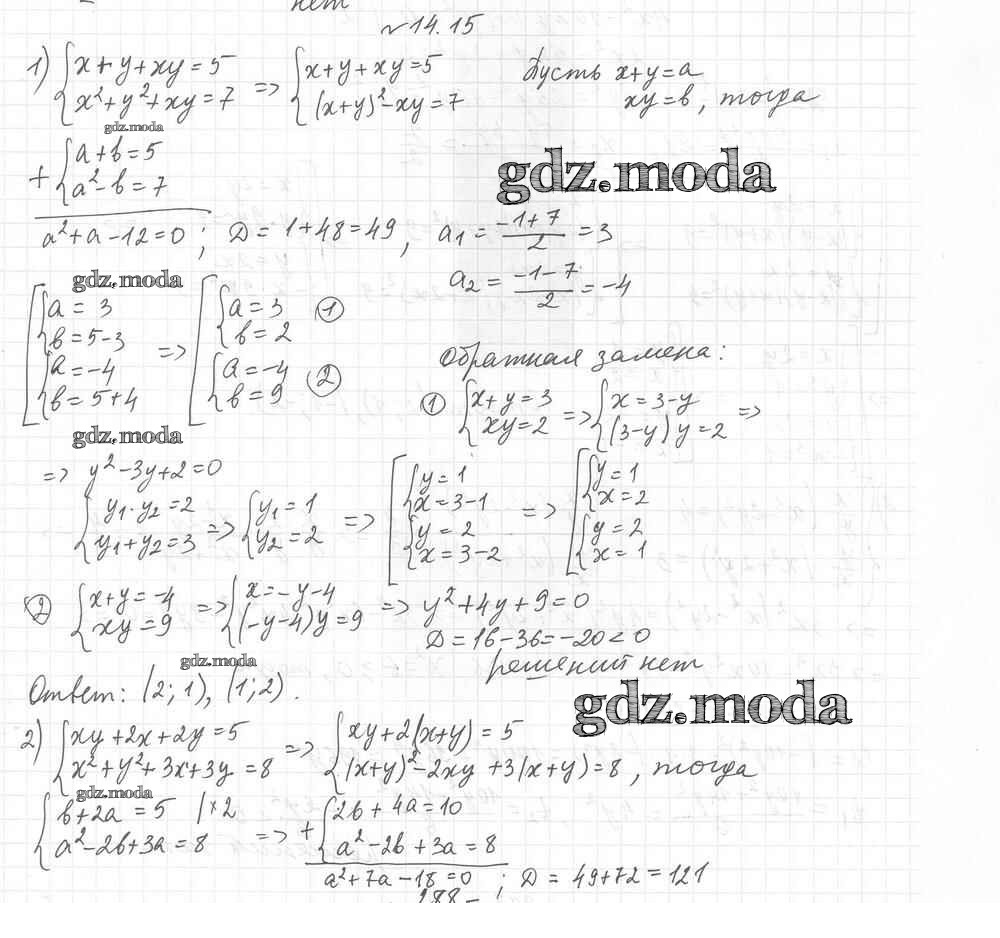 нет
№14.15
1) {x+y+xy=5 {x²+y²+xy=7 => {x+y+xy=5 {(x+y)²-xy=7 Пусть x+y=a xy=b, тогда
gdz.moda
+ {a+b=5 {a²-b=7
gdz.moda
a²+a-12=0; D=1+48=49, a₁=(-1+7)/2=3
a₂=(-1-7)/2=-4
gdz.moda
[{a=3 {b=5-3 {a=-4 {b=5+4 => [{a=3 {b=2 ① {a=-4 {b=9 ②
Обратная замена:
① {x+y=3 {xy=2 => {x=3-y {(3-y)y=2 =>
gdz.moda
=> y²-3y+2=0
{y₁·y₂=2 {y₁+y₂=3 => {y₁=1 {y₂=2 => [{y=1 {x=3-1 {y=2 {x=3-2 => [{y=1 {x=2 {y=2 {x=1
② {x+y=-4 {xy=9 => {x=-y-4 {(-y-4)y=9 => y²+4y+9=0
D=16-36=-20<0
решений нет
gdz.moda
Ответ: (2;1), (1;2).
gdz.moda
2) {xy+2x+2y=5 {x²+y²+3x+3y=8 => {xy+2(x+y)=5 {(x+y)²-2xy+3(x+y)=8, тогда
gdz.moda
{b+2a=5 |×2 {a²-2b+3a=8 => + {2b+4a=10 {a²-2b+3a=8
a²+7a-18=0; D=49+72=121